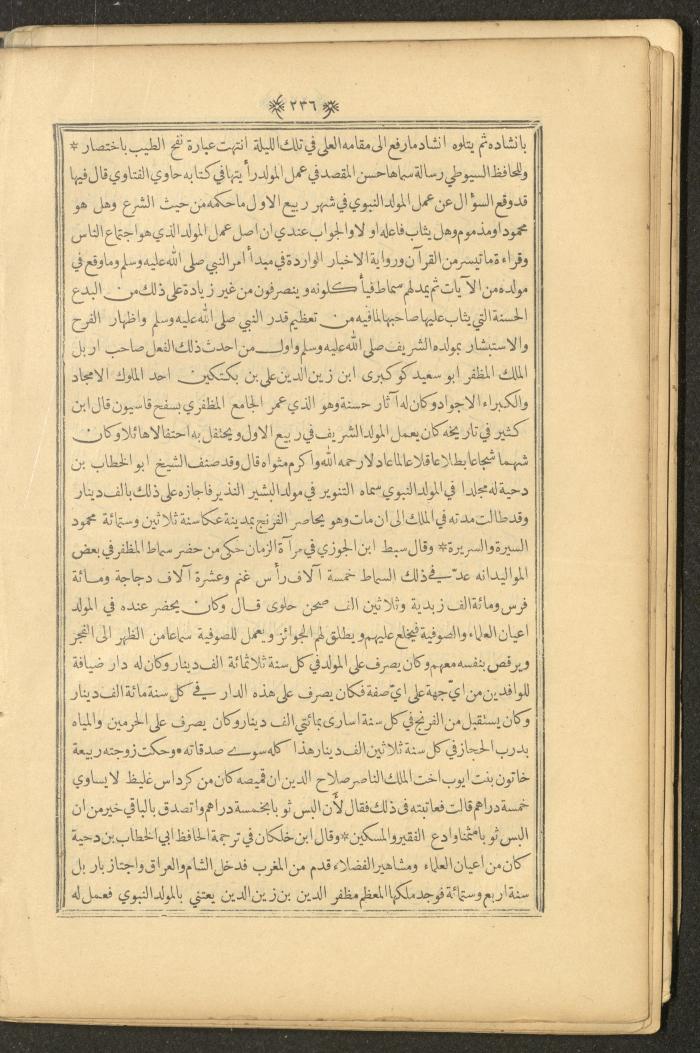 ٢٣٦
بانشاده ثم يتلوه انشاد ما رفع الى مقامه العلى في تلك الليلة انتهت عبارة نفح الطيب باختصار *
وللحافظ السيوطي رسالة سماها حسن المقصد في عمل المولد رأيتها في كتابه حاوي الفتاوي قال فيها
قد وقع السؤال عن عمل المولد النبوي في شهر ربيع الاول ما حكمه من حيث الشرع وهل هو
محمود او مذموم وهل يثاب فاعله او لا والجواب عندي ان اصل عمل المولد الذي هو اجتماع الناس
وقراءة ما تيسر من القرآن ورواية الاخبار الواردة في مبدأ امر النبي صلى الله عليه وسلم وما وقع في
مولده من الآيات ثم يمد لهم سماط فيأكلونه وينصرفون من غير زيادة على ذلك من البدع
الحسنة التي يثاب عليها صاحبها لما فيه من تعظيم قدر النبي صلى الله عليه وسلم واظهار الفرح
والاستبشار بمولده الشريف صلى الله عليه وسلم واول من احدث ذلك الفعل صاحب اربل
الملك المظفر ابو سعيد كوكبرى ابن زين الدين على بن بكتكين احد الملوك الامجاد
والكبراء الاجواد وكان له آثار حسنة وهو الذي عمر الجامع المظفري بسفح قاسيون قال ابن
كثير في تاريخه كان يعمل المولد الشريف في ربيع الاول ويحتفل به احتفالا هائلا وكان
شهما شجاعا بطلا عاقلا عالما عادلا رحمه الله واكرم مثواه قال وقد صنف الشيخ ابو الخطاب بن
دحية له مجلدا في المولد النبوي سماه التنوير في مولد البشير النذير فاجازه على ذلك بالف دينار
وقد طالت مدته في الملك الى ان مات وهو يحاصر الفرنج بمدينة عكا سنة ثلاثين وستمائة محمود
السيرة والسريرة * وقال سبط ابن الجوزي في مرآة الزمان حكى من حضر سماط المظفر في بعض
المواليد انه عدّ في ذلك السماط خمسة آلاف رأس غنم وعشرة آلاف دجاجة ومائة
فرس ومائة الف زبدية وثلاثين الف صحن حلوى قال وكان يحضر عنده في المولد
اعيان العلماء والصوفية فيخلع عليهم ويطلق لهم الجوائز ويعمل للصوفية سماعا من الظهر الى الفجر
ويرقص بنفسه معهم وكان يصرف على المولد في كل سنة ثلاثمائة الف دينار وكان له دار ضيافة
للوافدين من ايّ جهة على ايّ صفة فكان يصرف على هذه الدار في كل سنة مائة الف دينار
وكان يستقبل من الفرنج في كل سنة اسارى بمائتي الف دينار وكان يصرف على الحرمين والمياه
بدرب الحجاز في كل سنة ثلاثين الف دينار هذا كله سوى صدقاته • وحكت زوجته ربيعة
خاتون بنت ايوب اخت الملك الناصر صلاح الدين ان قميصه كان من كرداس غليظ لا يساوي
خمسة دراهم قالت فعاتبته في ذلك فقال لأن البس ثوبا بخمسة دراهم واتصدق بالباقي خير من ان
البس ثوبا مثمنا وادع الفقير والمسكين * وقال ابن خلكان في ترجمة الحافظ ابي الخطاب بن دحية
كان من اعيان العلماء ومشاهير الفضلاء قدم من المغرب فدخل الشام والعراق واجتاز باربل
سنة اربع وستمائة فوجد ملكها المعظم مظفر الدين بن زين الدين يعتني بالمولد النبوي فعمل له